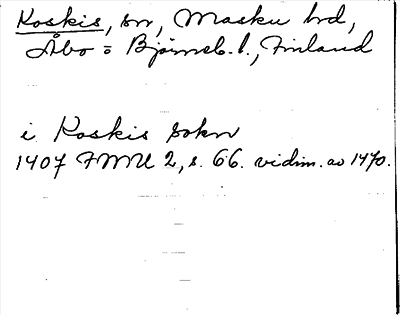 Koskis, sn, Masku hd,
Åbo o Björneb. l., Finland
i Koskis sokn
1407 FMU 2, s. 66. vidim. av 1470.